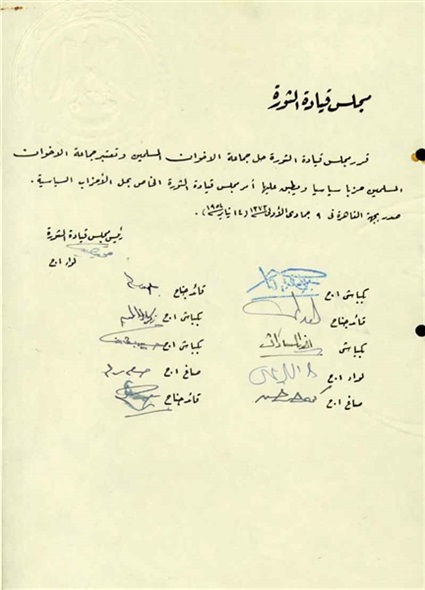 مجلس قيادة الثورة
قرر مجلس قيادة الثورة حل جماعة الاخوان المسلمين وتعتبر جماعة الاخوان
المسلمين حزبا سياسيا ويطبق عليها أمر مجلس قيادة الثورة الخاص بحل الأحزاب السياسية .
صدر بجهة القاهرة فى ٩ جمادى الأولى ١٣٧٣ (١٤ يناير ١٩٥٤) .
رئيس مجلس قيادة الثورة
لواء ا.ح
بكباشى ا.ح
قائد جناح
قائد جناح
بكباشى ا.ح
بكباشى
بكباشى ا.ح
لواء ا.ح
صاغ ا.ح
صاغ ا.ح
قائد جناح